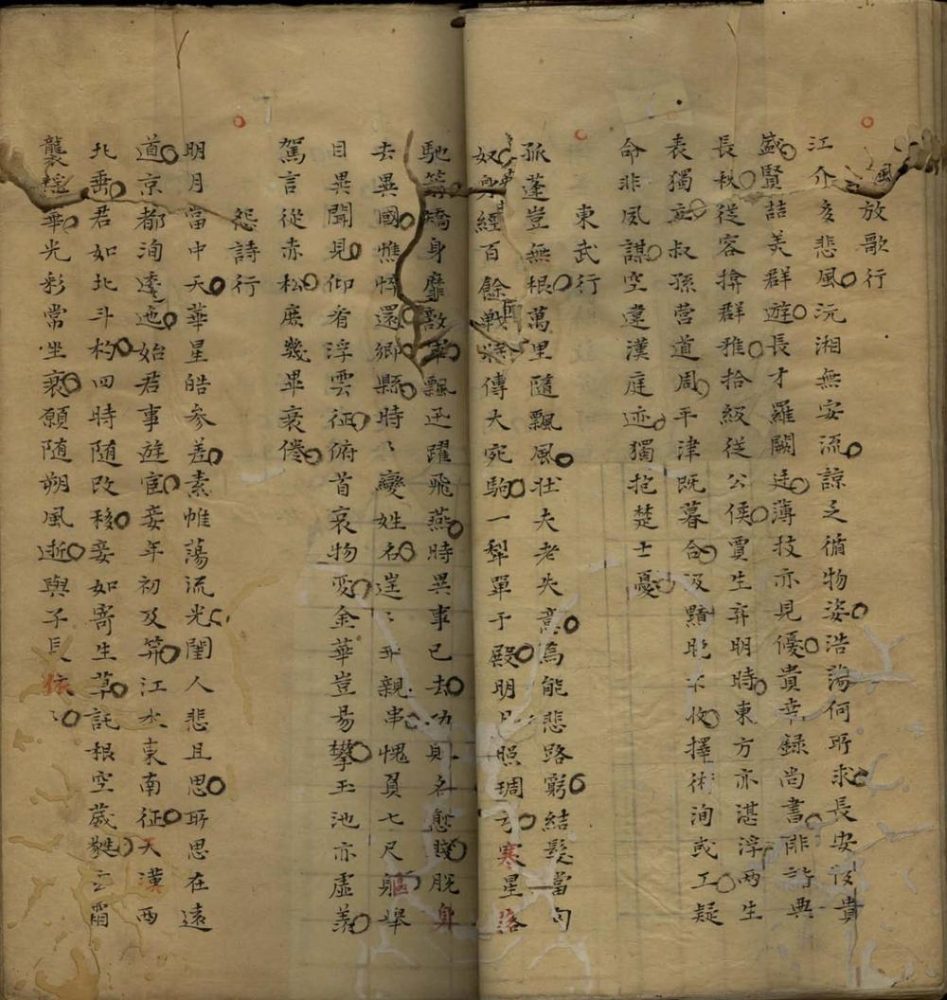 放歌行
江介多悲風沅湘無安流諒乏循物姿浩蕩何所求長安貴
盛賢喆美群遊長才羅闕廷薄技亦見優貴幸錄尚書俳詼典
長秋從容揜群雅拾級從公侯賈生弃明時東方亦湛浮兩生
表獨立叔孫营道周平津既暮合汲黯眊不收擇術洵或工疑
命非夙謀空違漢庭迹獨抱楚士憂
東武行
孤蓬豈無根萬里隨飄風壯夫老失意焉能悲路窮結髮當匈
奴經百餘戰將傳大宛駒一犂單于殿明月照琱弓寒星落
馳筭矯身靡敵飄迅躍飛燕時異事已去功則名愈賤脫身
去異國憔悴還鄉縣時〻變姓名遑〻弃親串愧負七尺軀舉
目異聞見仰看浮雲征俯首哀物变金華豈易攀玉池亦虛羨
駕言從赤松庶幾畢衰倦
怨詩行
明月當中天華星皓參差素帷蕩流光閨人悲且思所思在遠
道京都洵逶迤始君事遊宦妾年初及筓江水東南征天漢西
北垂君如北斗杓四時随改移妾如寄生草託根空葳蕤云霜
襲穠華光彩常坐衰願随朔風逝與子長〻